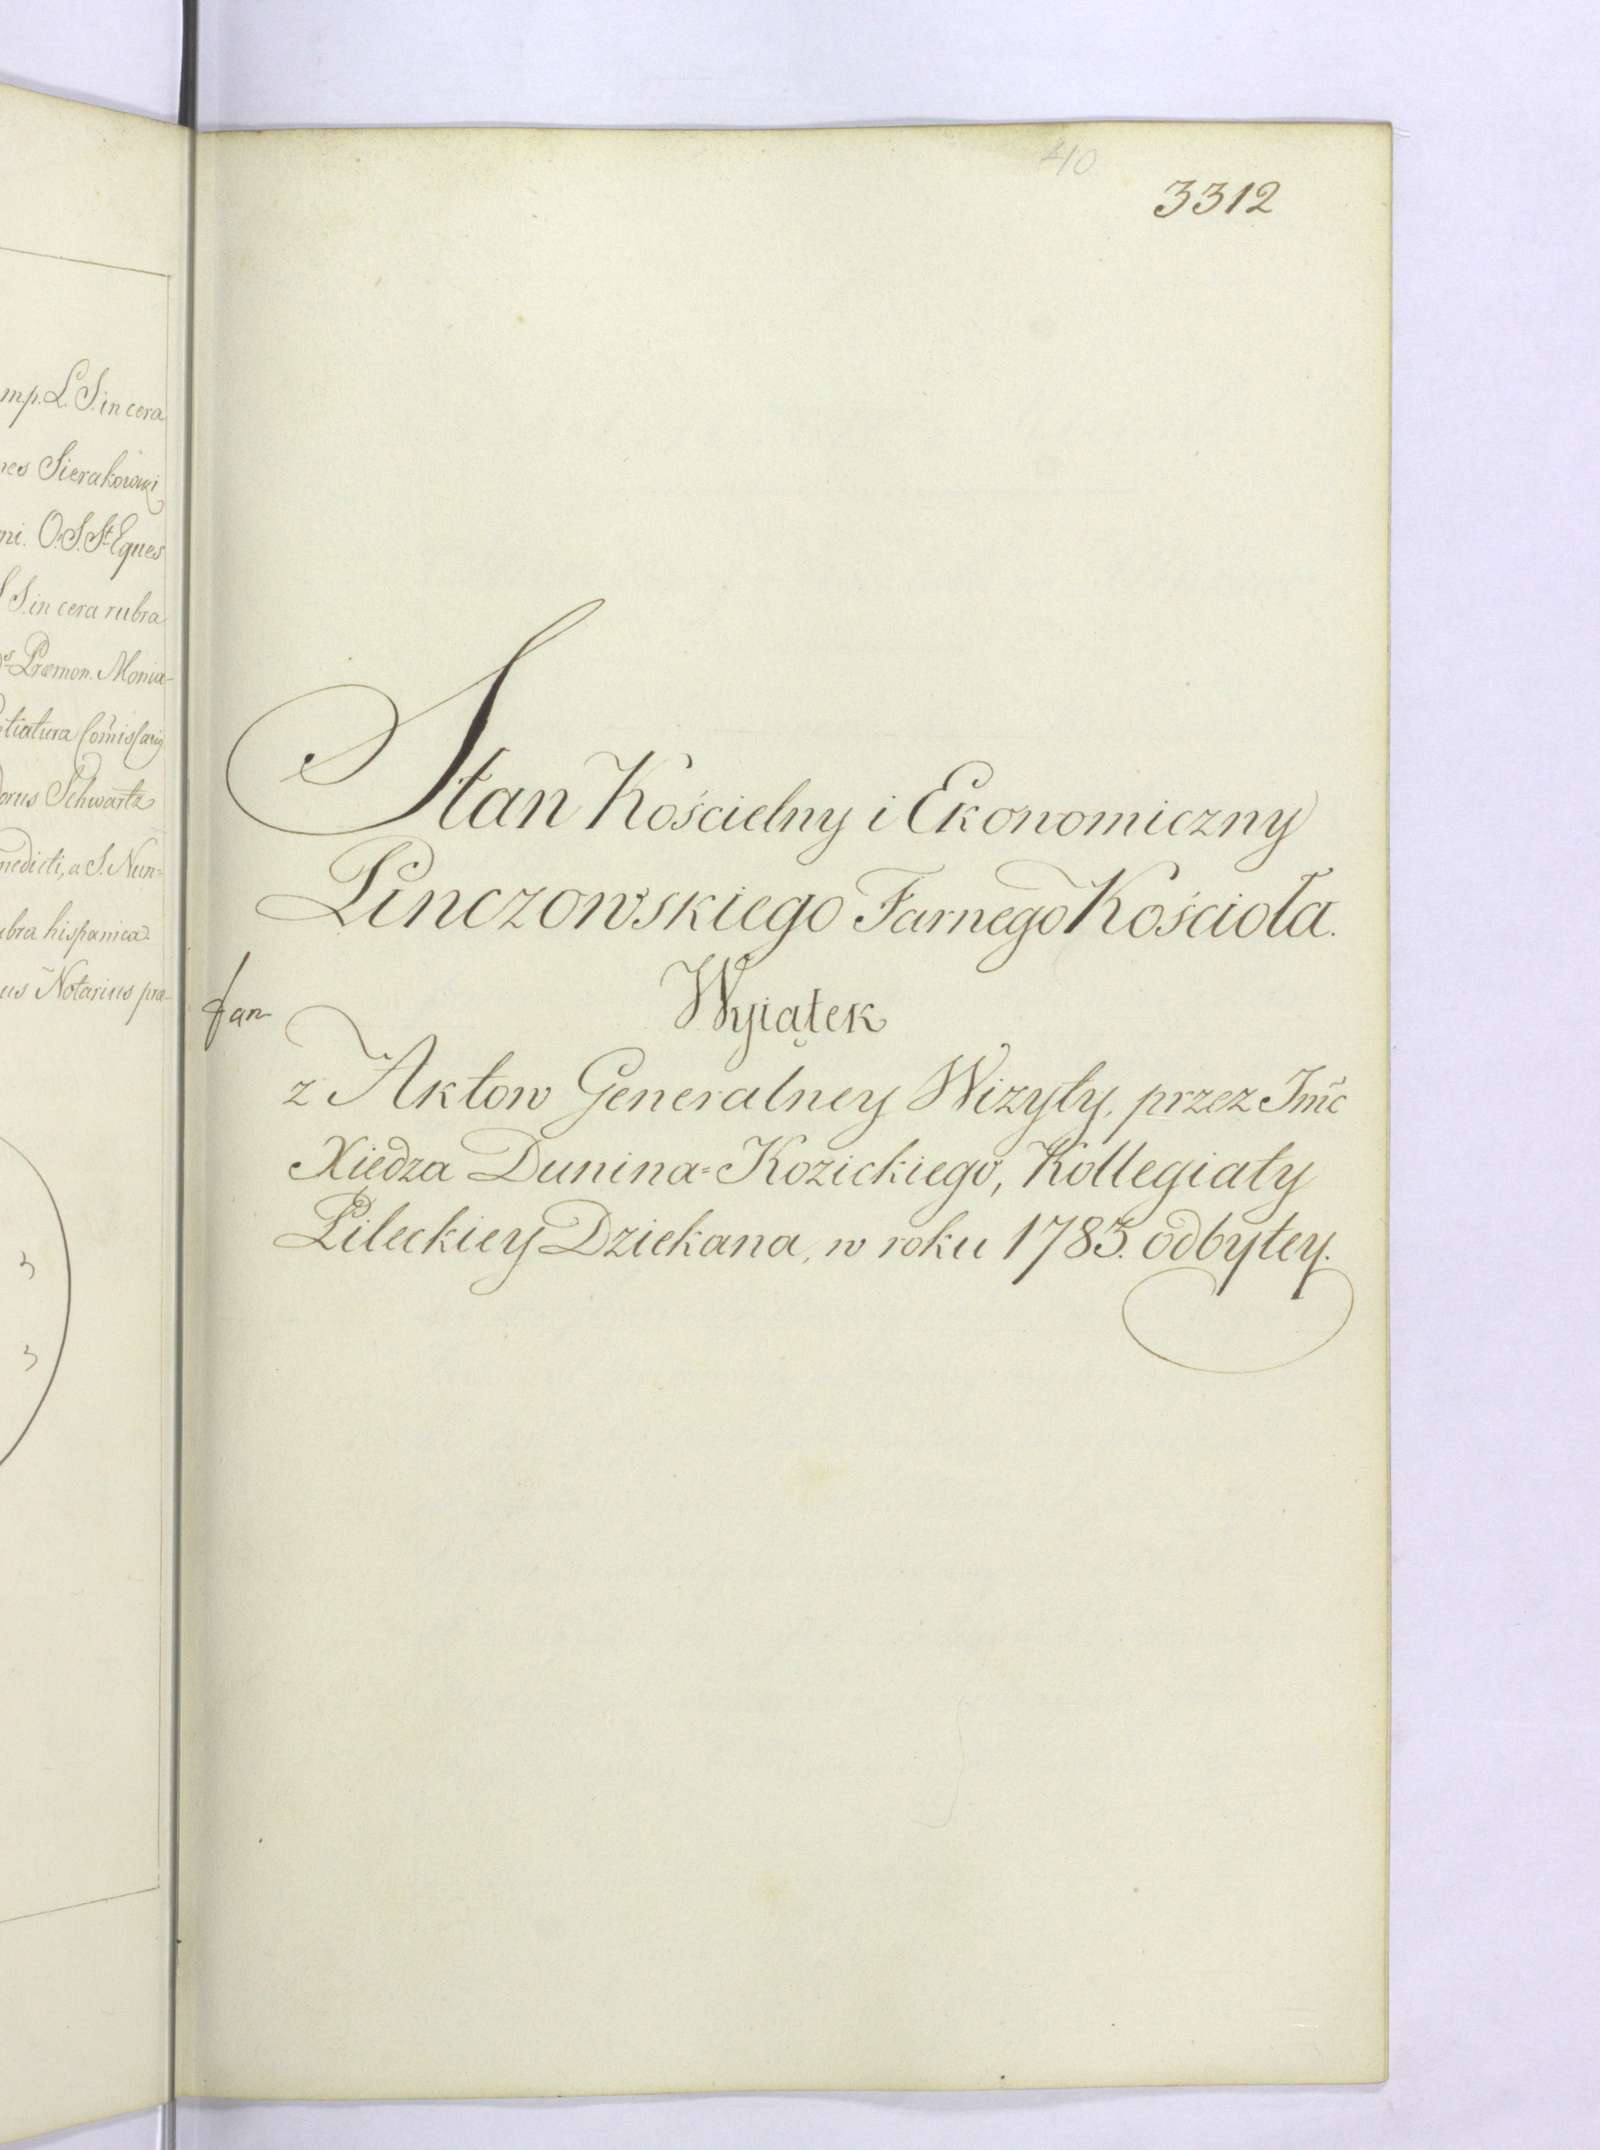 mp. L. S. in cera
nes Sierakowski
ni. O. S. St. Eques
S. in cera rubra
Præmon. Monia-
tiatura Com̃issarij
orus Schwartz
nedicti, a S. Nun=
ubra hispanica.
us Notarius præ-
3
3
40
3312
Stan Kościelny i Ekonomiczny
Pinczowskiego Farnego Kościoła.
Wyiątek
z Aktow Generalney Wizyty, przez Jmc̃
Xiedza Dunina=Kozickiego, Kollegiaty
Pileckiey Dziekana, w roku 1783. odbytey.